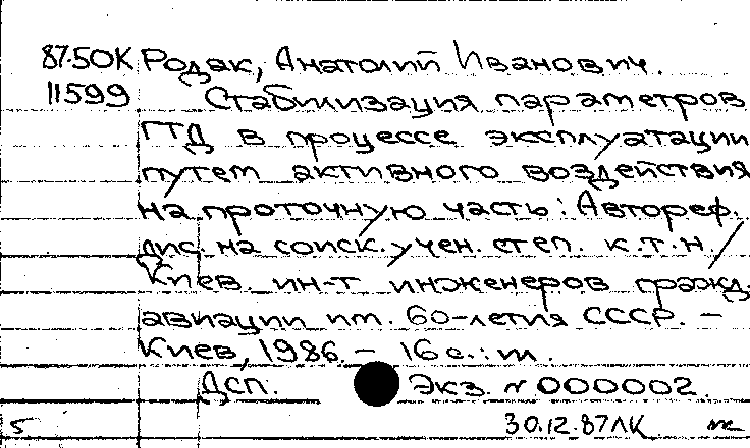 87-5ОК Родак, Анатолий Иванович.
11599 Стабилизация параметров
ГТД в процессе эксплуатации
путем активного воздействия
на проточную часть: Автореф.
дис. на соиск. учен. степ. к.т.н./
Киев. ин-т инженеров гражд.
авиации им. 60-летия СССР. –
Киев, 1986. – 16 с.: ил.
Дсп. Экз. № 000002.
5 30.12.87ЛК